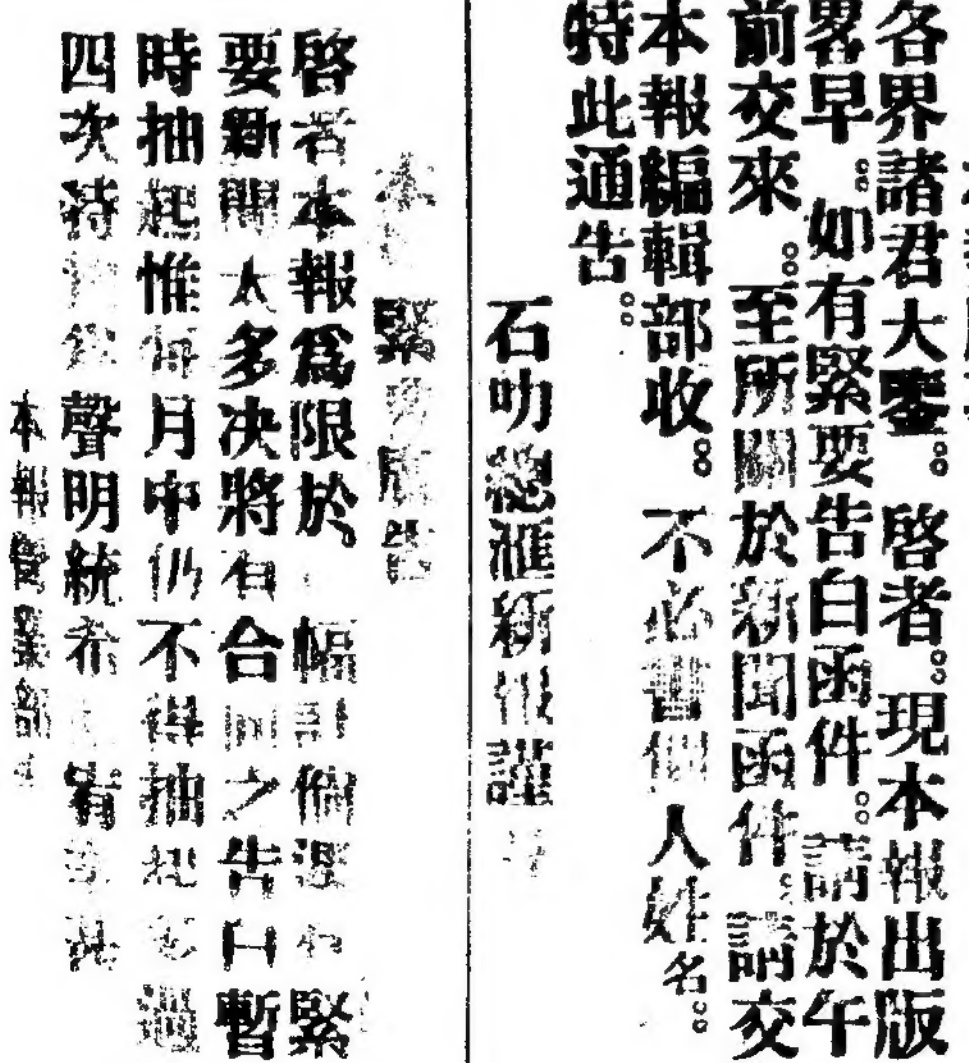 各界諸君大鑒。啓者。現本報出版
畧早。如有緊要告白函件。請於午
前交來。至所關於新聞函件。請交
本報編輯部收。不必書個人姓名。
特此通告。
石叻總滙新報謹
本 緊要廣告
啓者本報爲限於 幅 倘遇有緊
要新聞太多决將有合同之告白暫
時抽起惟每月中仍不得抽起過
四次特 聲明統希 宥 此
本報營業部